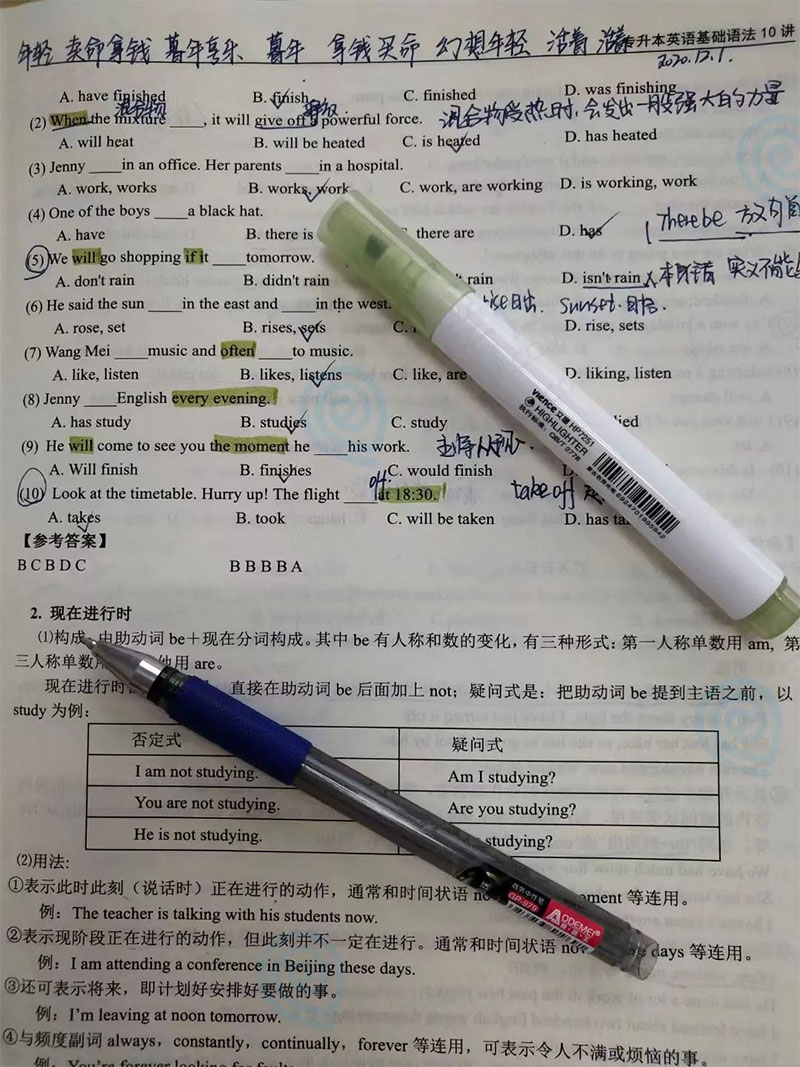 年轻 卖命拿钱 暮年享乐 暮年 拿钱买命 幻想年轻 活着 活着
专升本英语基础语法 10 讲
2020.12.1.
A. have finished B. finish C. finished D. was finishing
混合物
(2) When the mixture ____, it will give off a powerful force. 混合物受热时,会发出一股强大的力量
A. will heat B. will be heated C. is heated D. has heated
(3) Jenny ____in an office. Her parents ____in a hospital.
A. work, works B. works, work C. work, are working D. is working, work
(4) One of the boys ____a black hat.
A. have B. there is C. there are D. has
There be 方又有首
(5) We will go shopping if it ____tomorrow.
A. don't rain B. didn't rain rain D. isn't rain 本题错
(6) He said the sun ____in the east and ____in the west. 日出. sunset. 日落.
A. rose, set B. rises, sets C. D. rise, sets
(7) Wang Mei ____music and often ____to music.
A. like, listen B. likes, listens C. like, are D. liking, listen
(8) Jenny ____English every evening.
A. has study B. studies C. study
(9) He will come to see you the moment he ____his work. 主将从现.
A. Will finish B. finishes C. would finish D.
off
(10) Look at the timetable. Hurry up! The flight ____at 18:30. take off
A. takes B. took C. will be taken D. has ta
【参考答案】
B C B D C B B B B A
vience HP7251
HIGHLIGHTER
执行标准: QB/T 2778
6924701905942
2. 现在进行时
⑴构成:由助动词 be＋现在分词构成。其中 be 有人称和数的变化,有三种形式:第一人称单数用 am, 第
三人称单数用 他用 are。
现在进行时 直接在助动词 be 后面加上 not;疑问式是:把助动词 be 提到主语之前,以
study 为例:
否定式 疑问式
I am not studying. Am I studying?
You are not studying. Are you studying?
He is not studying. studying?
GP-979
AODEMEI
⑵用法:
①表示此时此刻（说话时）正在进行的动作,通常和时间状语 moment 等连用。
例:The teacher is talking with his students now.
②表示现阶段正在进行的动作,但此刻并不一定在进行。通常和时间状语 now days 等连用。
例:I am attending a conference in Beijing these days.
③还可表示将来,即计划好安排好要做的事。
例:I'm leaving at noon tomorrow.
④与频度副词 always，constantly，continually，forever 等连用，可表示令人不满或烦恼的事。
例:You're forever looking for faults.